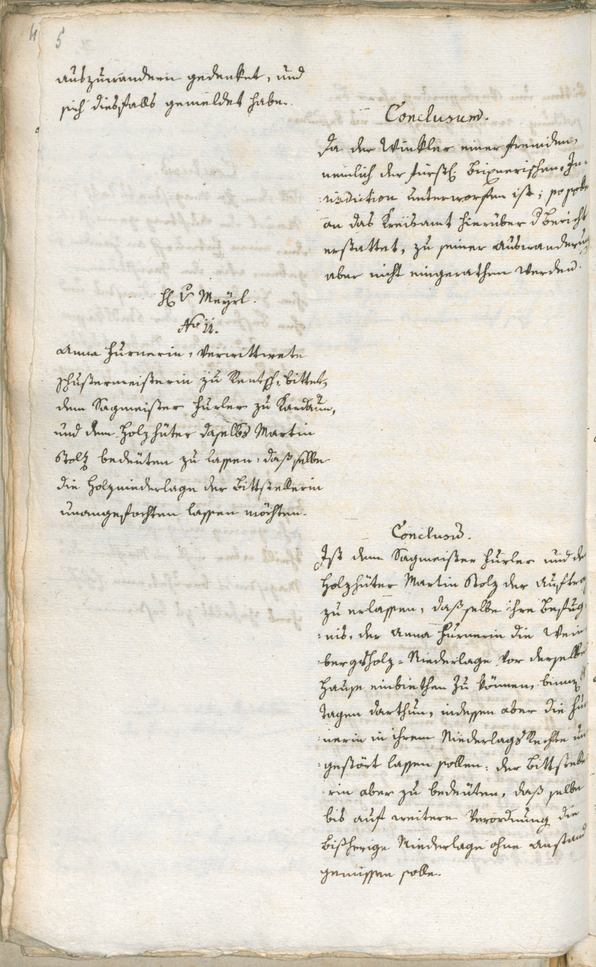 5
auszuwandern gedenket, und
sich diesfalls gemeldet habe.
Conclusum.
Da der Winkler einer fremden,
nemlich der fürstl: Brixnerischen Ju-
risdiction unterworfen ist; so solle
an das Kreisamt hierüber d Bericht
erstattet, zu seiner Auswanderung
aber nicht eingerathen werden.
H: v: Meyrl.
No 11.
Anna Hurnerin, verwittwete
Schustermeisterin zu Rentsch, bittet,
dem Sagmeister Hurler zu Kardaun,
und dem Holzhüter daselbs Martin
Stolz bedeuten zu lassen, daß selbe
die Holzniederlage der Bittstellerin
unangefochten lassen möchten.
Conclusū.
Ist dem Sagmeister Hurler und de
Holzhüter Martin Stolz der Auftrag
zu erlassen, daß selbe ihre Befug-
nis, der Anna Hurnerin die Wein-
bergsholz-Niederlage vor derselbe
Hause einbiethen zu können, binnen
Tagen darthun, indessen aber die Hur
nerin in ihrem Niederlags Rechte un
gestört lassen sollen; der Bittstelle
rin aber zu bedeuten, daß selbe
bis auf weitere Verordnung die
bisherige Niederlage ohne Anstand
geniessen solle.